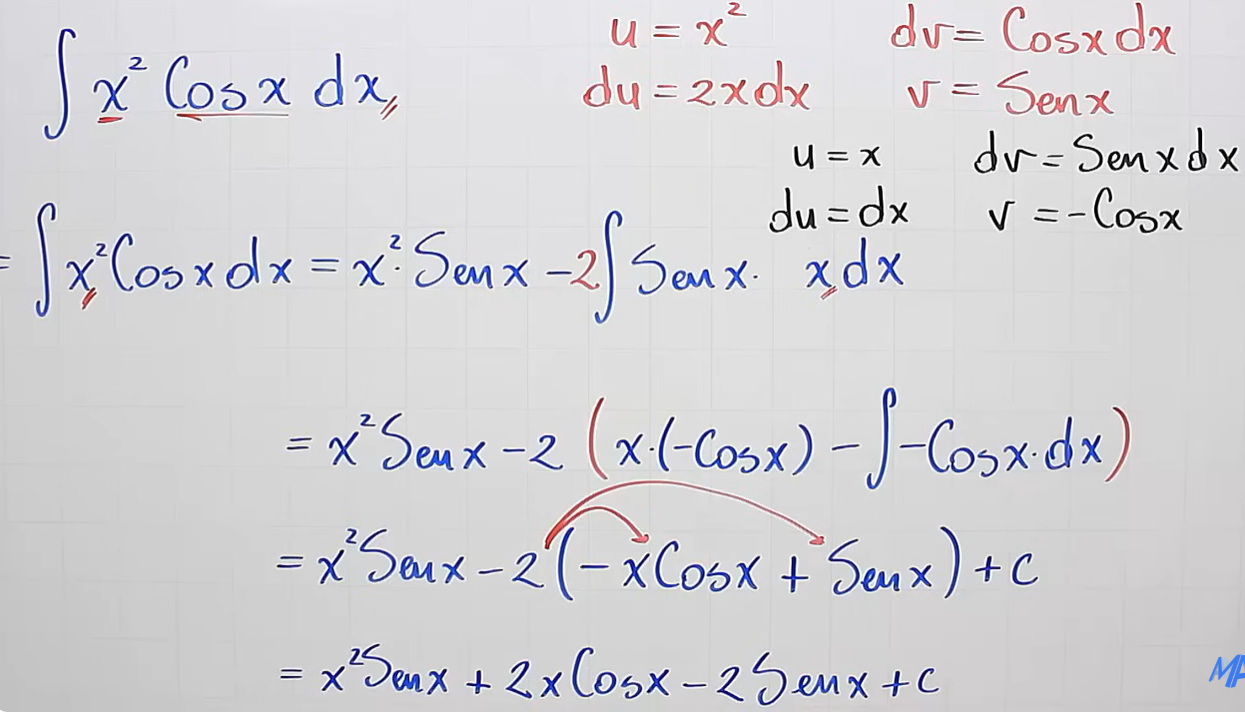 ∫ x² Cosx dx
u = x² dv = Cosx dx
du = 2xdx v = Senx
u = x dv = Senxdx
du = dx v = -Cosx
= ∫ x² Cosxdx = x²· Senx - 2∫ Senx · xdx
= x² Senx - 2 (x·(-Cosx) - ∫ -Cosx·dx)
= x² Senx - 2 (-xCosx + Senx) + c
= x² Senx + 2xCosx - 2Senx + c
MA